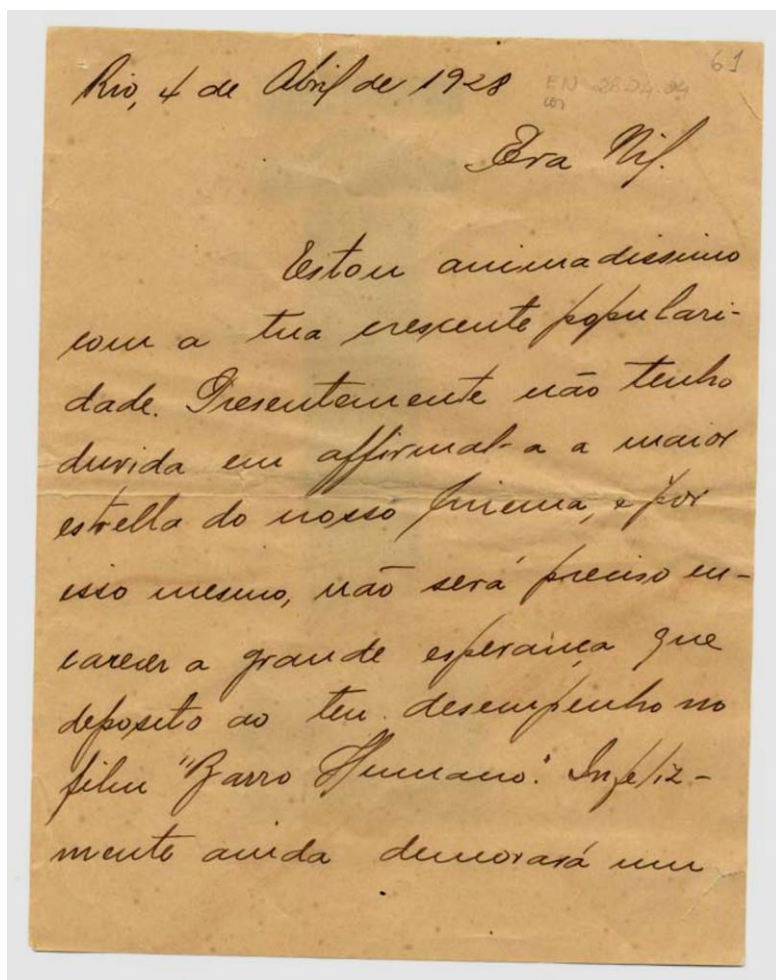 61
Rio, 4 de Abril de 1928
EN 28.04.04
Eva Nil.
Estou animadissimo
com a tua crescente populari-
dade. Presentemente não tenho
duvida em affirmal-a a maior
estrella do nosso Cinema, e por
isso mesmo, não será preciso en-
carecer a grande esperança que
deposito ao teu desempenho no
film "Barro Humano". Infeliz-
mente ainda demorará um